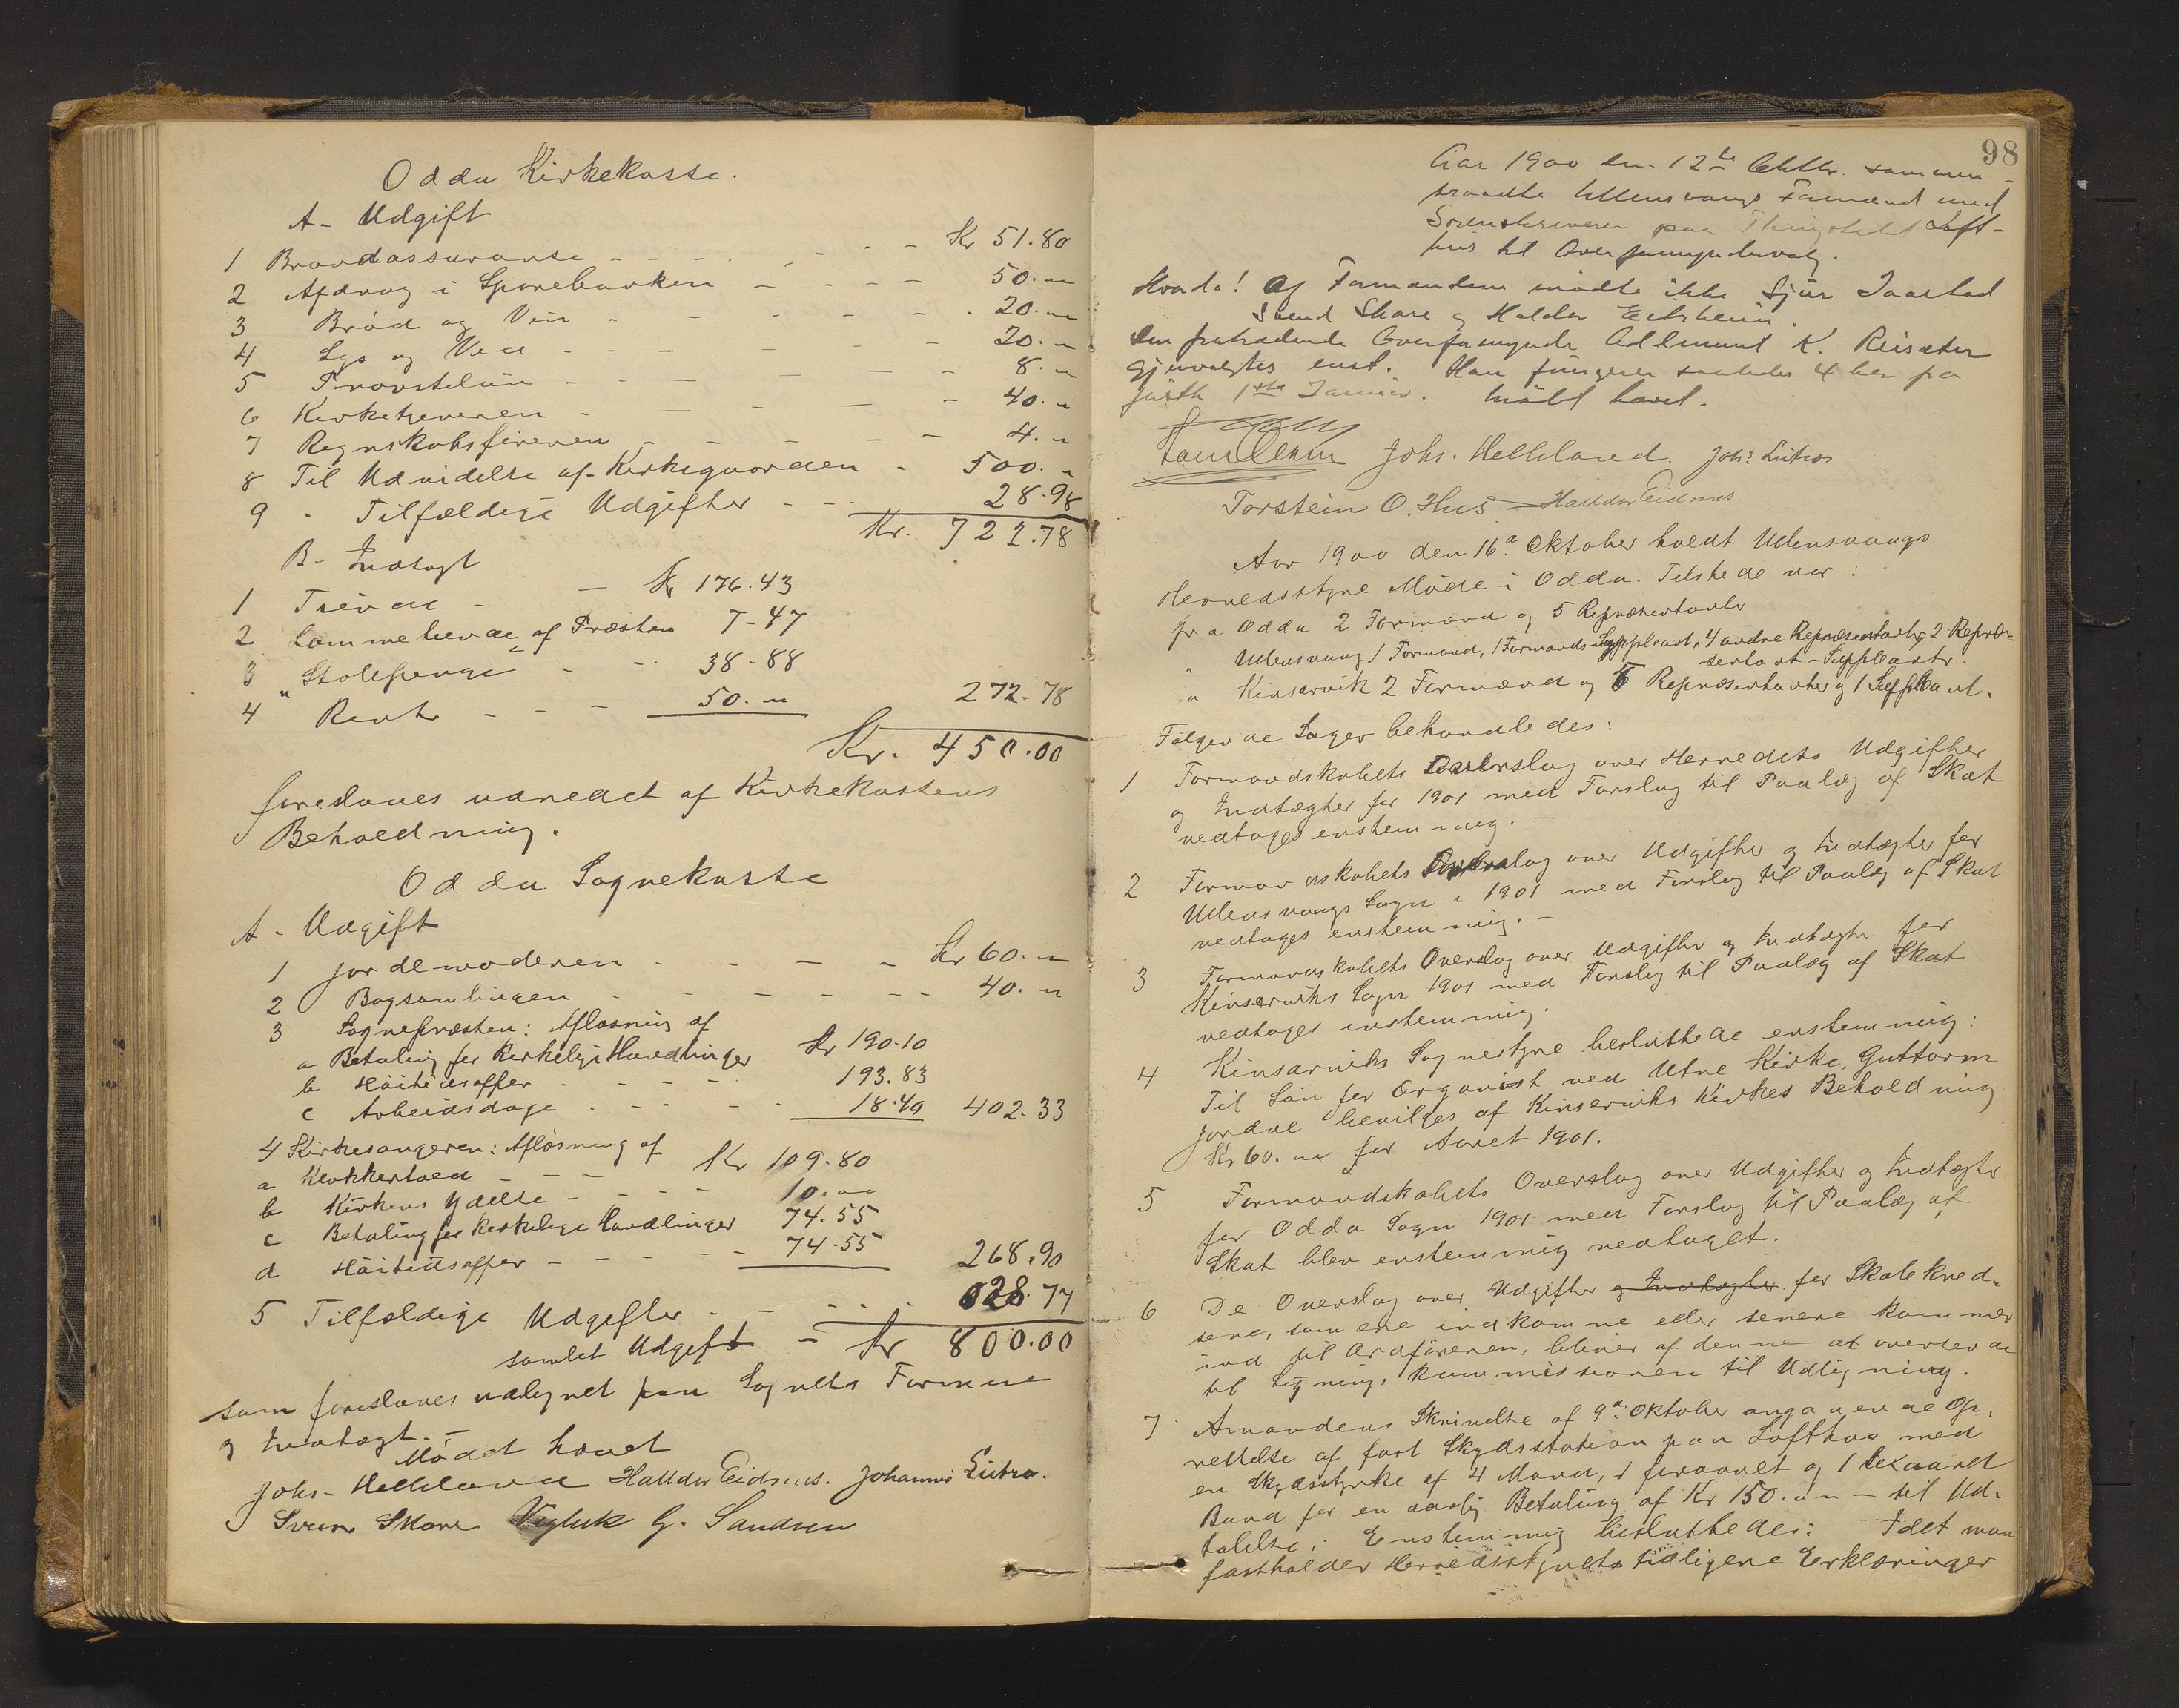 Odda Kirkekasse.
A- Udgift
1 Brandassurance - - - - - - Kr 51.80
2 Afdrag i Sparebanken - - - - 50.„
3 Bröd og Vin - - - - - 20.„
4 Lys og Ved - - - - - 20.„
5 Provstelön - - - - - 8.„
6 Kirketjeneren - - - - - 40.„
7 Regnskabsföreren - - - - - 4.„
8 Til Udvidelse af Kirkegaarden - 500.„
9 „ Tilfældige Udgifter - - - 28.98
Kr. 722.78
B- Indtægt
1 Tiende - - Kr 176.43
2 Samme tiende af Præsten 7-47
3 „ Stolepenge - - 38-88
4 Rente - - - 50.„ 272.78
Kr. 450.00
foreslaaes udredet af Kirkekassens
Beholdning.
Odda Sognekasse
A- Udgift
1 Jordemoderen - - - - Kr 60.„
2 Bogsamlingen - - - - - - 40.„
3 Sognepræsten: Aflösning af
a Betaling for Kirkelige Handlinger Kr 190.10
b Höitidsoffer - - - - 193.83
c Arbeidsdage - - - - - 18.40 402.33
4 Kirkesangeren: Aflösning af
a Klokkertold - - - Kr 109.80
b Kirkens Ydelse - - - - 10.„
c Betaling for Kirkelige Handlinger 74.55
d Höitidsoffer - - - - 74.55 268.90
5 Tilfældige Udgifter - - - - 28.77
samlet Udgift - Kr 800.00
som foreslaaes udlignet paa Sognets Formue
og Indtægt.-
Mödet hævet
Johs. Helleland Halldor Eidnes. Johannes Lutro.
Svein Skare Vigleik G. Sandsen
98
Aar 1900 den 12te Oktbr. sammen-
traadte Ullensvangs Formænd med
Sorenskriveren paa Thingstedet Loft-
hus til Overformyndervalg.
Hvorda! Af Formændene mödte ikke Sjur Jaastad
Svend Skare og Haldor Eitrheim.
Den fratrædende Overformynder Asbmund K. Reisæter
gjenvalgtes enst. Han fungerer saaledes 4 her fra
förstk 1ste Januar. Mödet hævet.
Johs. Helleland. Johs Lutro
Torstein O. Hus Halldor Eidnes.
Aar 1900 den 16de Oktober holdt Ullensvangs
Herredsstyre Möde i Odda. Tilstede var:
fra Odda 2 Formænd og 5 Repræsentanter
„ Ullensvang 1 Formand, 1 Formands Suppleant, 4 andre Repræsentanter, 2 Repræ-
sentant-Suppleanter.
„ Kinservik 2 Formænd og 5 Repræsentanter og 1 Suppleant.
Fölgende Sager behandledes:
1 Formandskabets Overslag over Herredets Udgifter
og Indtægter for 1901 med Forslag til Paalæg af Skat
vedtoges enstemmig.-
2 Formandskabets Overslag over Udgifter og Indtægter for
Ullensvangs Sogn i 1901 med Forslag til Paalæg af Skat
vedtoges enstemmig.-
3 Formandskabets Overslag over Udgifter og Indtægter for
Kinserviks Sogn 1901 med Forslag til Paalæg af Skat
vedtoges enstemmig.
4 Kinserviks Sognestyre besluttede enstemmig:
Til Lön for Organist ved Utne Kirke, Guttorm
Jordal bevilges af Kinserviks Kirkes Beholdning
Kr 60.„ for Aaret 1901.
5 Formandskabets Overslag over Udgifter og Indtægter
for Odda Sogn 1901 med Forslag til Paalæg af
Skat blev enstemmig vedtaget.
6 De Overslag over Udgifter og Indtægter for Skolekred-
sene, som ere indkomne eller senere kommer
ind til Ordföreren, bliver af denne at oversende
til Ligningskommissionen til Udligning.
7 Amandens Skrivelse af 9de Oktober angaaende Op-
rettelse af fast Skydsstation paa Lofthus med
en Skydsstyrke af 4 Mand, 1 firaaret og 1 sexaaret
Baad for en aarlig Betaling af Kr 150.„ - til Ud-
talelse: Enstemmig besluttedes: Idet man
fastholder Herredsstyrets tidligere Erklæringer